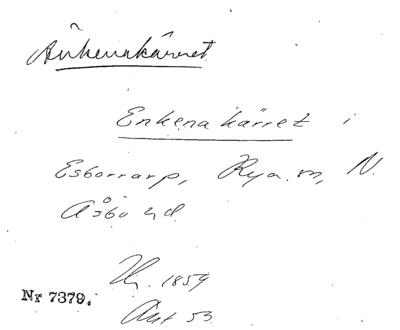 Änkenakärret
Enkenakärret i
Esborrarp, Rya sn, N.
Åsbo hd.
1859
Nr 7379.
Akt 53